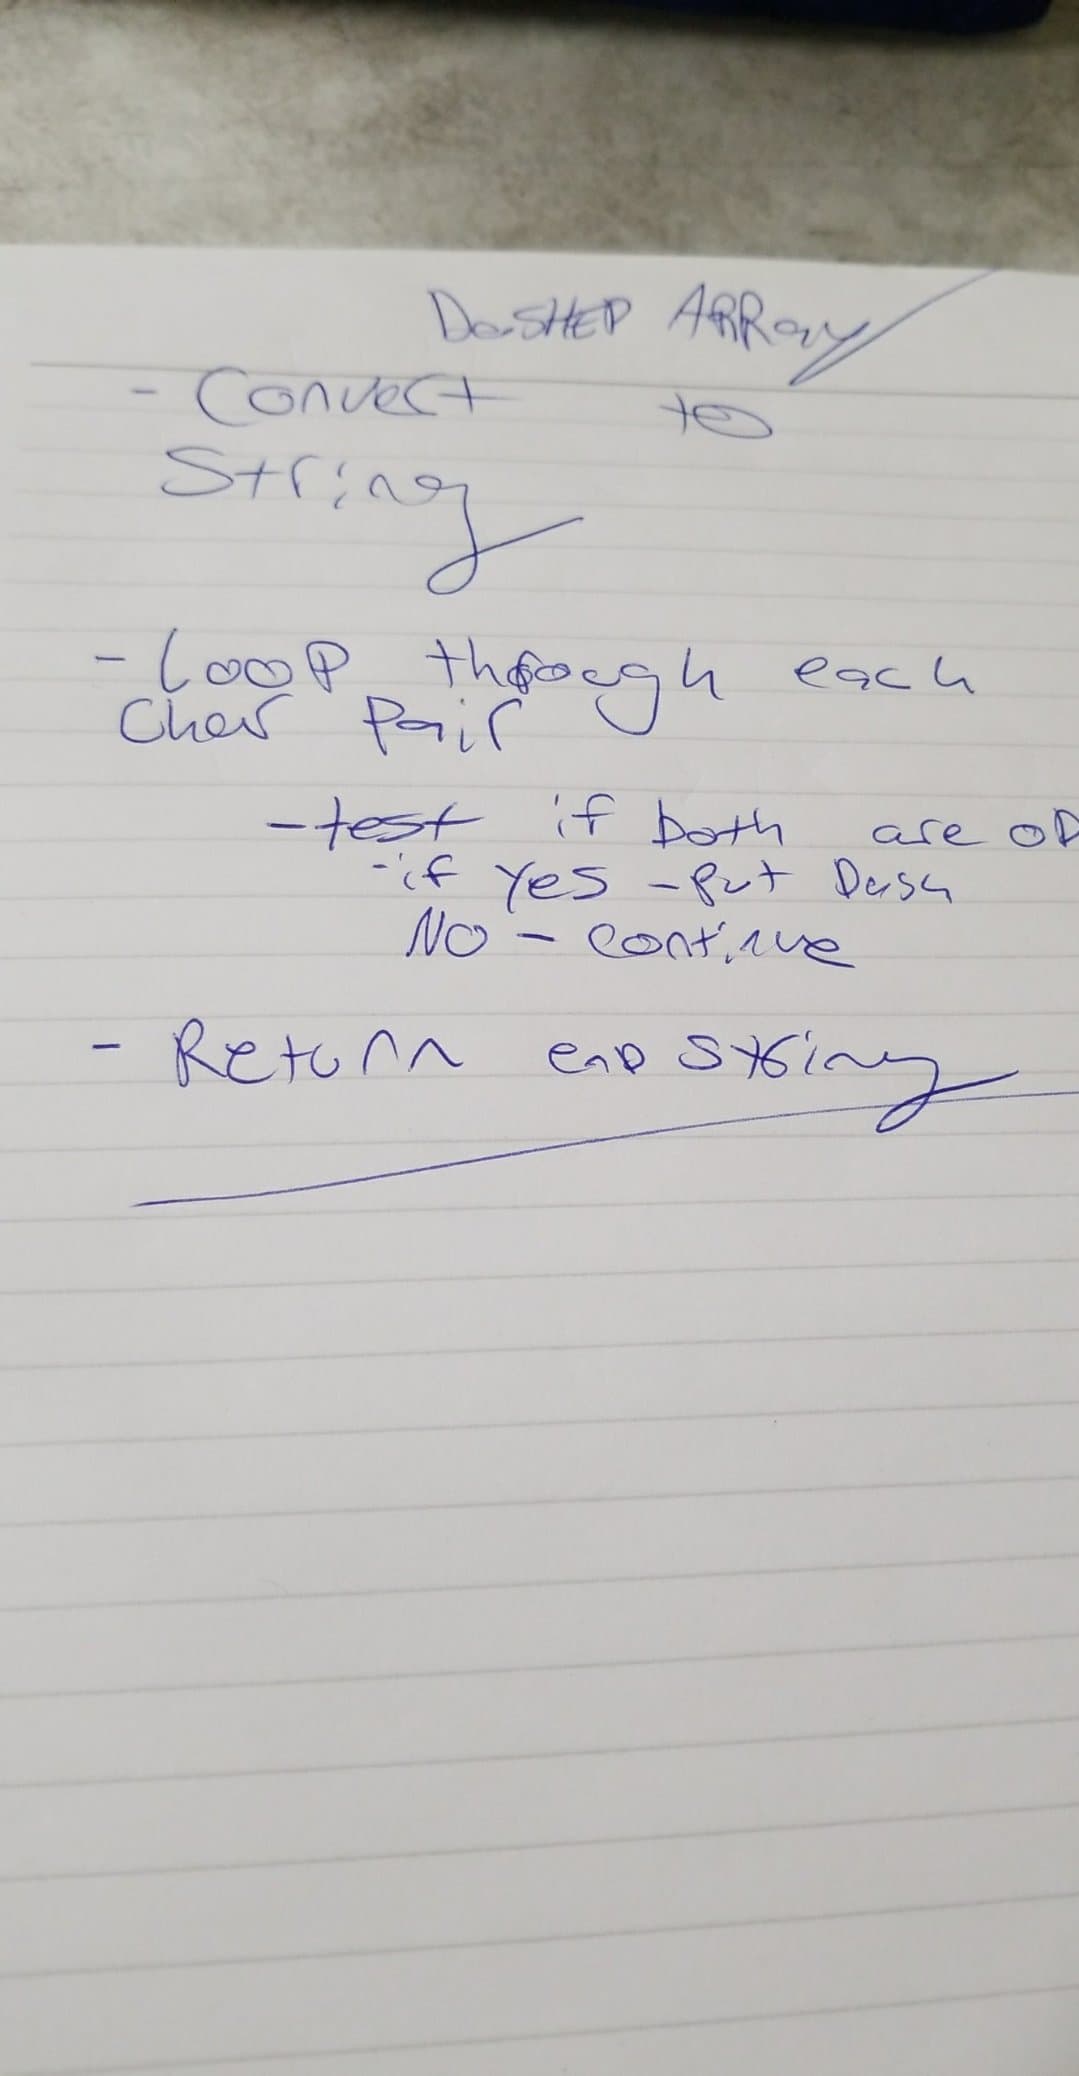 DaSHED ARRay
- Convert to
String
- Loop through each
Char Pair
- test if both are OD
- if Yes - Put Dash
NO - Continue
- Return enD String